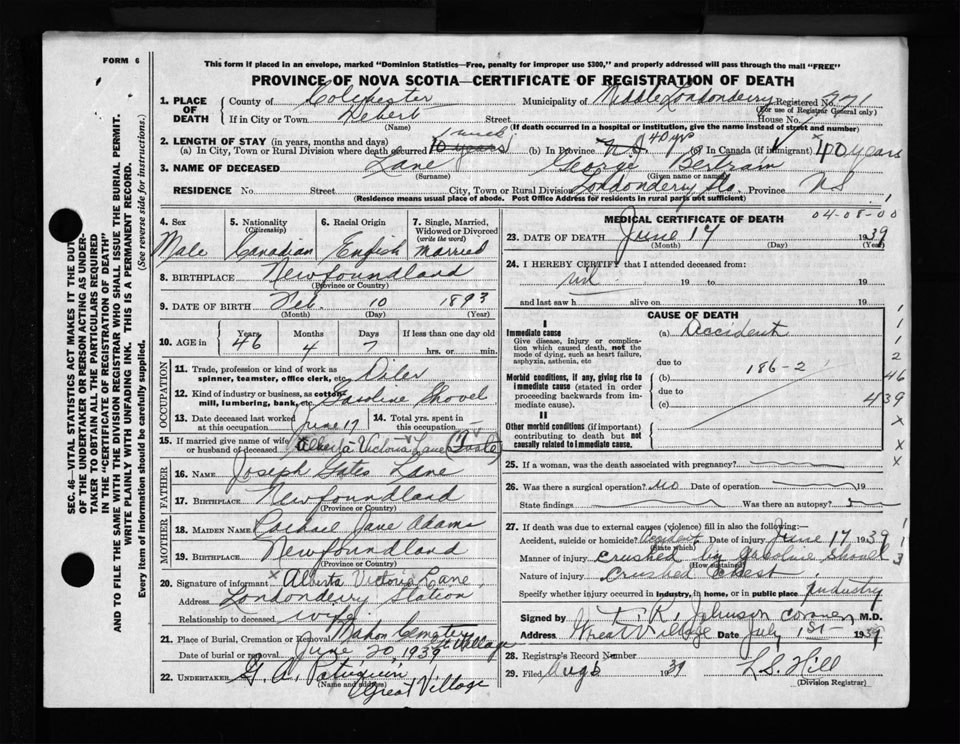 FORM 6
This form if placed in an envelope, marked "Dominion Statistics—Free, penalty for improper use $300," and properly addressed will pass through the mail "FREE"
PROVINCE OF NOVA SCOTIA—CERTIFICATE OF REGISTRATION OF DEATH
SEC. 46—VITAL STATISTICS ACT MAKES IT THE DUTY
OF THE UNDERTAKER OR PERSON ACTING AS UNDER-
TAKER TO OBTAIN ALL THE PARTICULARS REQUIRED
IN THE "CERTIFICATE OF REGISTRATION OF DEATH"
AND TO FILE THE SAME WITH THE DIVISION REGISTRAR WHO SHALL ISSUE THE BURIAL PERMIT.
WRITE PLAINLY WITH UNFADING INK. THIS IS A PERMANENT RECORD.
Every item of information should be carefully supplied. (See reverse side for instructions.)
1. PLACE OF DEATH County of Colchester Municipality of Middle Londonderry Registered No. 971
(For use of Registrar General only)
If in City or Town Debert Street House No.
(Name) (If death occurred in a hospital or institution, give the name instead of street and number)
2. LENGTH OF STAY (in years, months and days)
(a) In City, Town or Rural Division where death occurred 10 years (b) In Province NS 40 yrs (c) In Canada (if immigrant) 40 years
3. NAME OF DECEASED Lane George Bertram
(Surname) (Given name or names)
RESIDENCE No. Street City, Town or Rural Division Londonderry Sta. Province NS
(Residence means usual place of abode. Post Office Address for residents in rural parts not sufficient)
4. Sex Male
5. Nationality (Citizenship) Canadian
6. Racial Origin English
7. Single, Married, Widowed or Divorced (write the word) Married
8. BIRTHPLACE Newfoundland
(Province or Country)
9. DATE OF BIRTH Feb. 10 1893
(Month) (Day) (Year)
10. AGE in Years 46 Months 4 Days 7 If less than one day old
hrs. or min.
OCCUPATION
11. Trade, profession or kind of work as
spinner, teamster, office clerk, etc. Oiler
12. Kind of industry or business, as cotton-
mill, lumbering, bank, etc. Gasoline Shovel
13. Date deceased last worked at this occupation June 17
14. Total yrs. spent in this occupation
15. If married give name of wife or husband of deceased Alberta Victoria Lane
FATHER
16. NAME Joseph Gates Lane
17. BIRTHPLACE Newfoundland
(Province or Country)
MOTHER
18. MAIDEN NAME Jane Adams
19. BIRTHPLACE Newfoundland
(Province or Country)
20. Signature of informant x Alberta Victoria Lane
Address Londonderry Station
Relationship to deceased wife
21. Place of Burial, Cremation or Removal Mahon Cemetery Gt Village
Date of burial or removal June 20, 1939
22. UNDERTAKER G. A. Patriquin
(Name and address) Great Village
04-08-00
MEDICAL CERTIFICATE OF DEATH
23. DATE OF DEATH June 17 1939
(Month) (Day) (Year)
24. I HEREBY CERTIFY that I attended deceased from:
nil 19 to 19
and last saw h alive on 19
CAUSE OF DEATH
I
Immediate cause (a) Accident
Give disease, injury or complica-
tion which caused death, not the
mode of dying, such as heart failure,
asphyxia, asthenia, etc
due to
186-2
Morbid conditions, if any, giving rise to (b)
immediate cause (stated in order due to
proceeding backwards from im- (c)
mediate cause).
II
Other morbid conditions (if important)
contributing to death but not
causally related to immediate cause.
1
1
1
2
46
439
x
x
x
25. If a woman, was the death associated with pregnancy?
26. Was there a surgical operation? no Date of operation 19
State findings Was there an autopsy?
27. If death was due to external causes (violence) fill in also the following:—
Accident, suicide or homicide? Accident Date of injury June 17 1939
(State which)
Manner of injury crushed by Gasoline Shovel
(How sustained)
Nature of injury Crushed Chest
Specify whether injury occurred in industry, in home, or in public place Industry
Signed by T. R. Johnson coroner M.D.
Address Great Village Date July 1st 1939
28. Registrar's Record Number
29. Filed Aug 6 1939 L S. Hill
(Division Registrar)